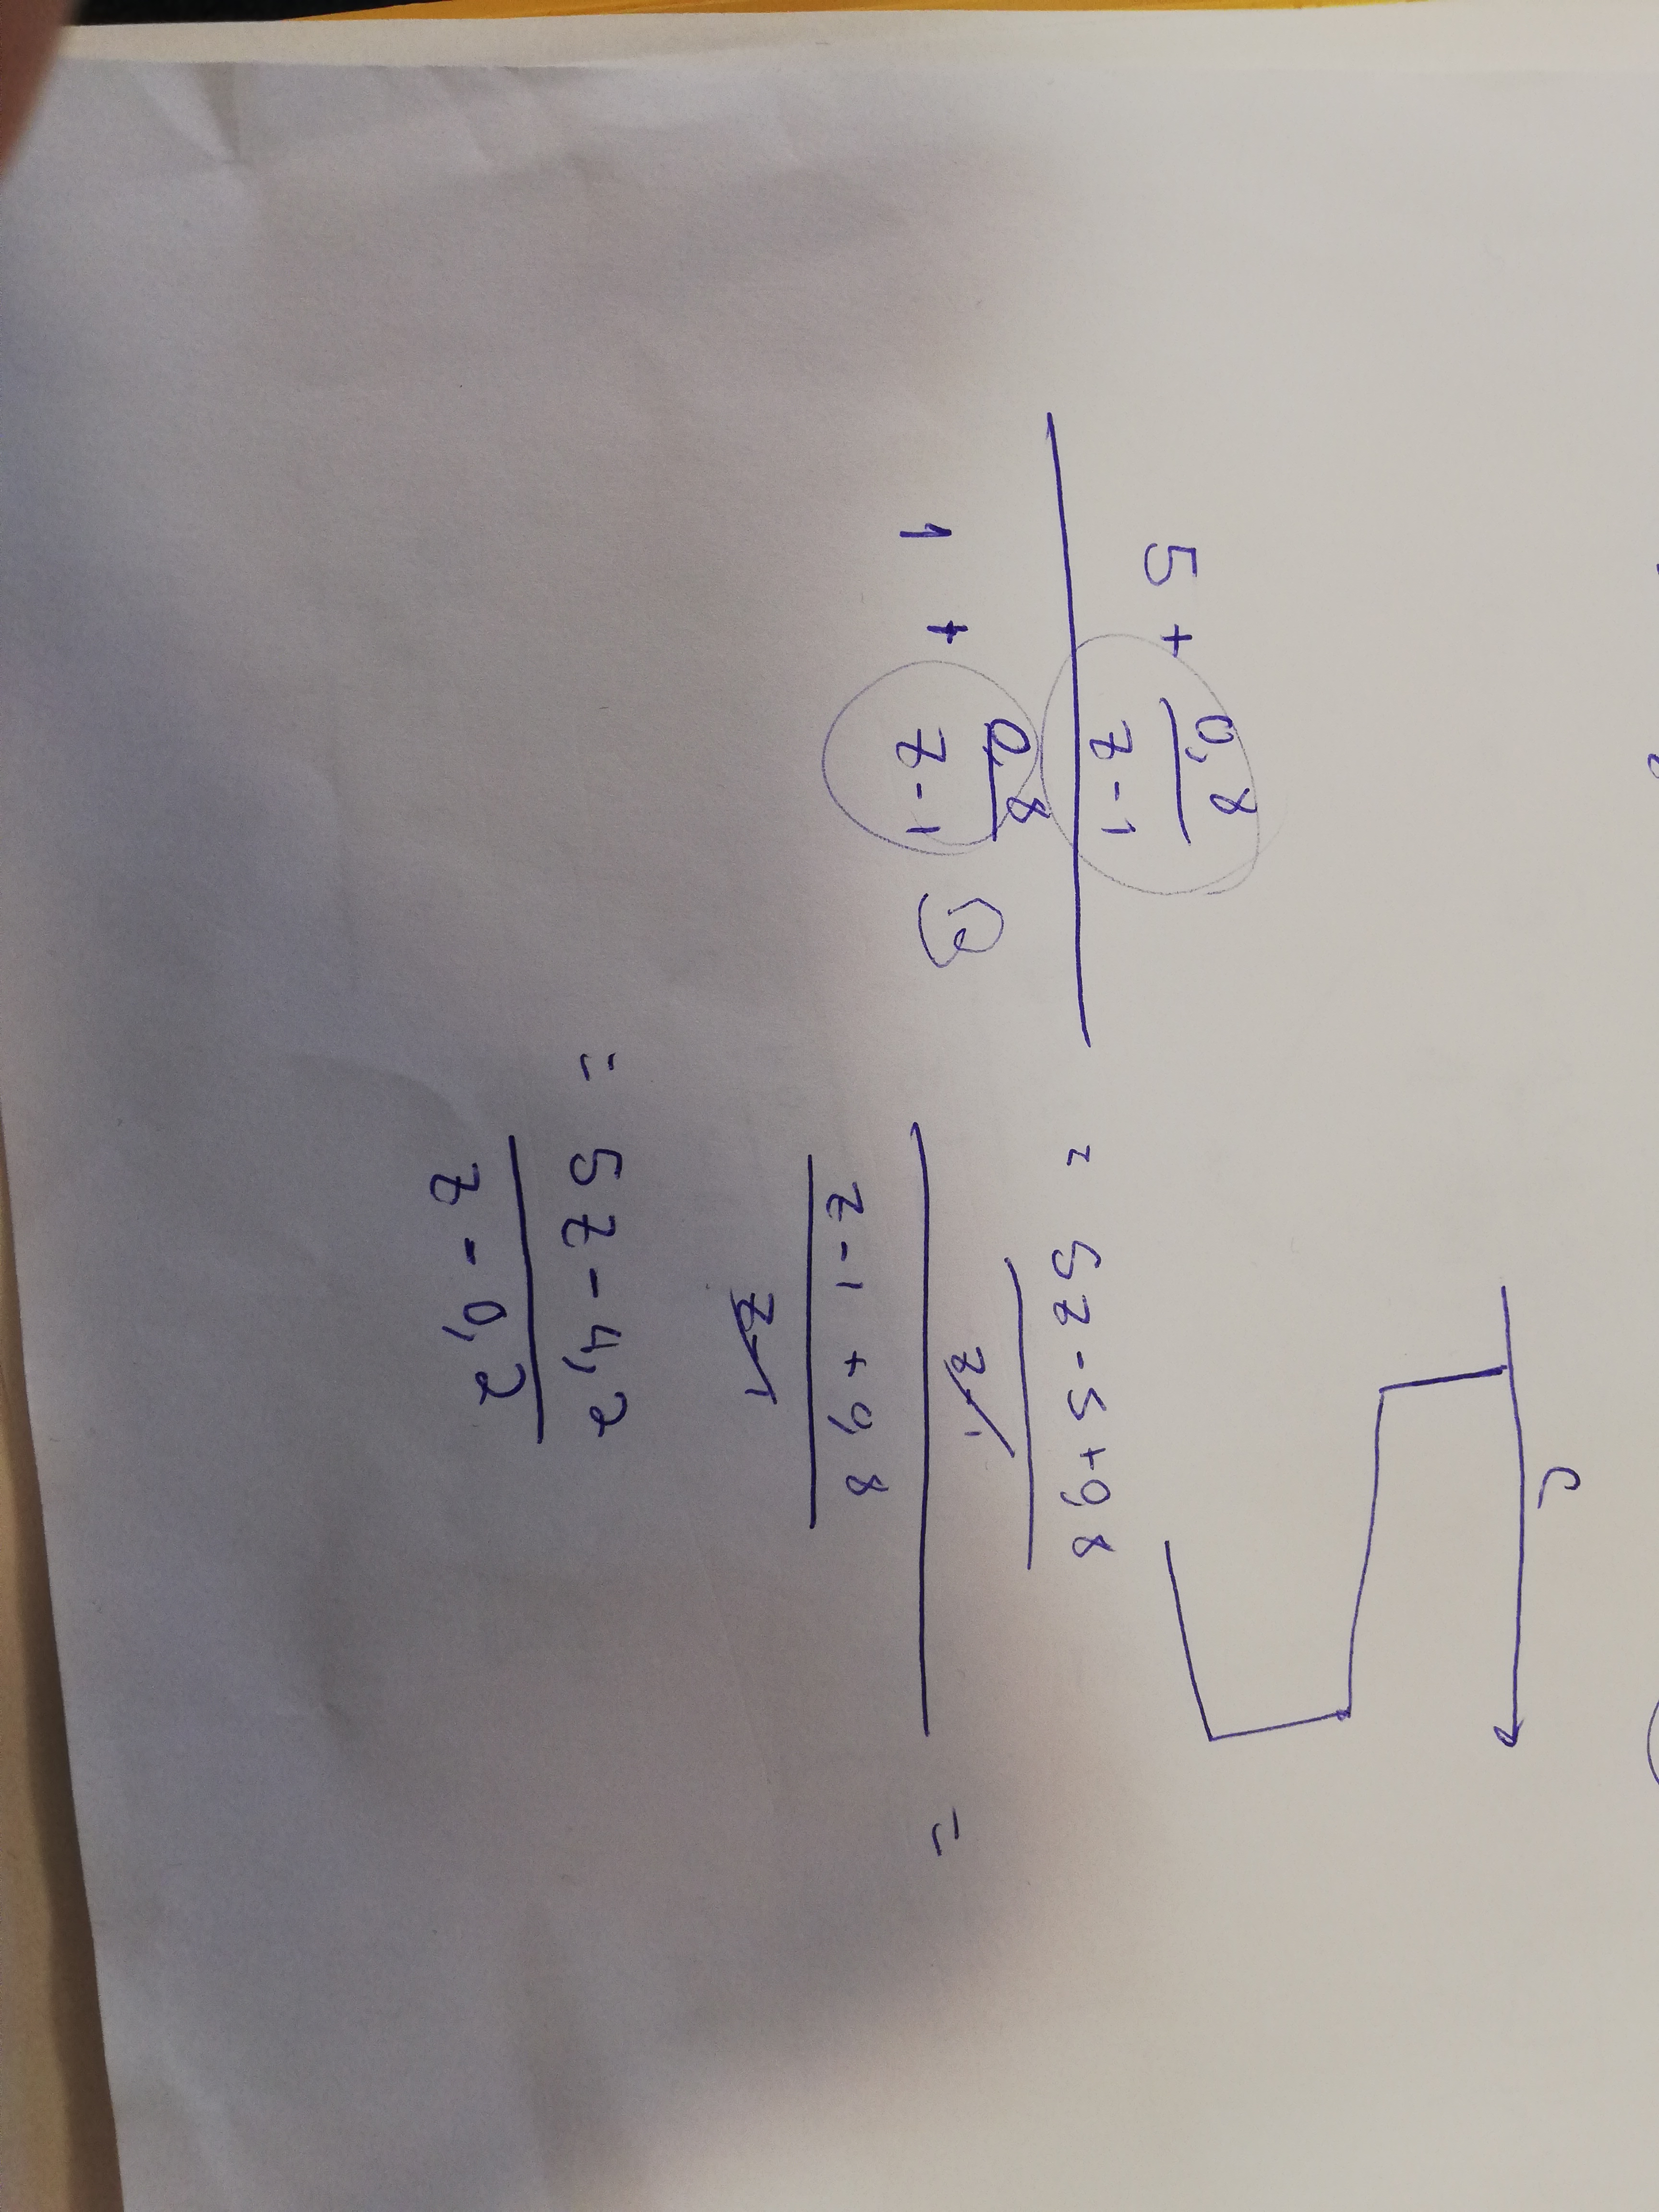 5 + 0,8
z-1
1 + 0,8
z-1
= 5z - 5 + 0,8
z-1
z - 1 + 0,8
z-1
=
= 5z - 4,2
z - 0,2